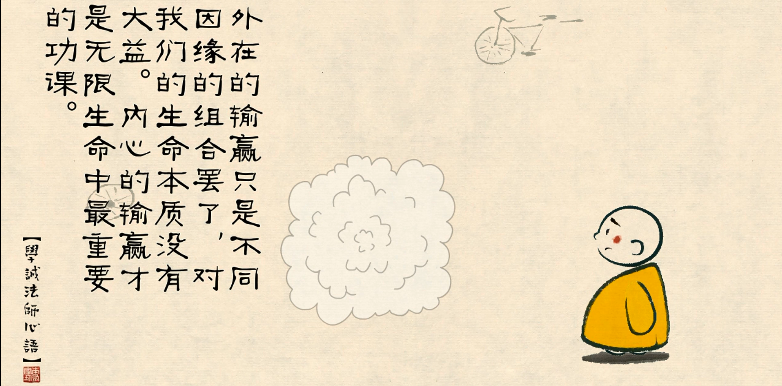 外在的输赢只是不同
因缘的组合罢了，对
我们的生命本质没有
大益。内心的输赢才
是无限生命中最重要
的功课。
【學誠法師心語】